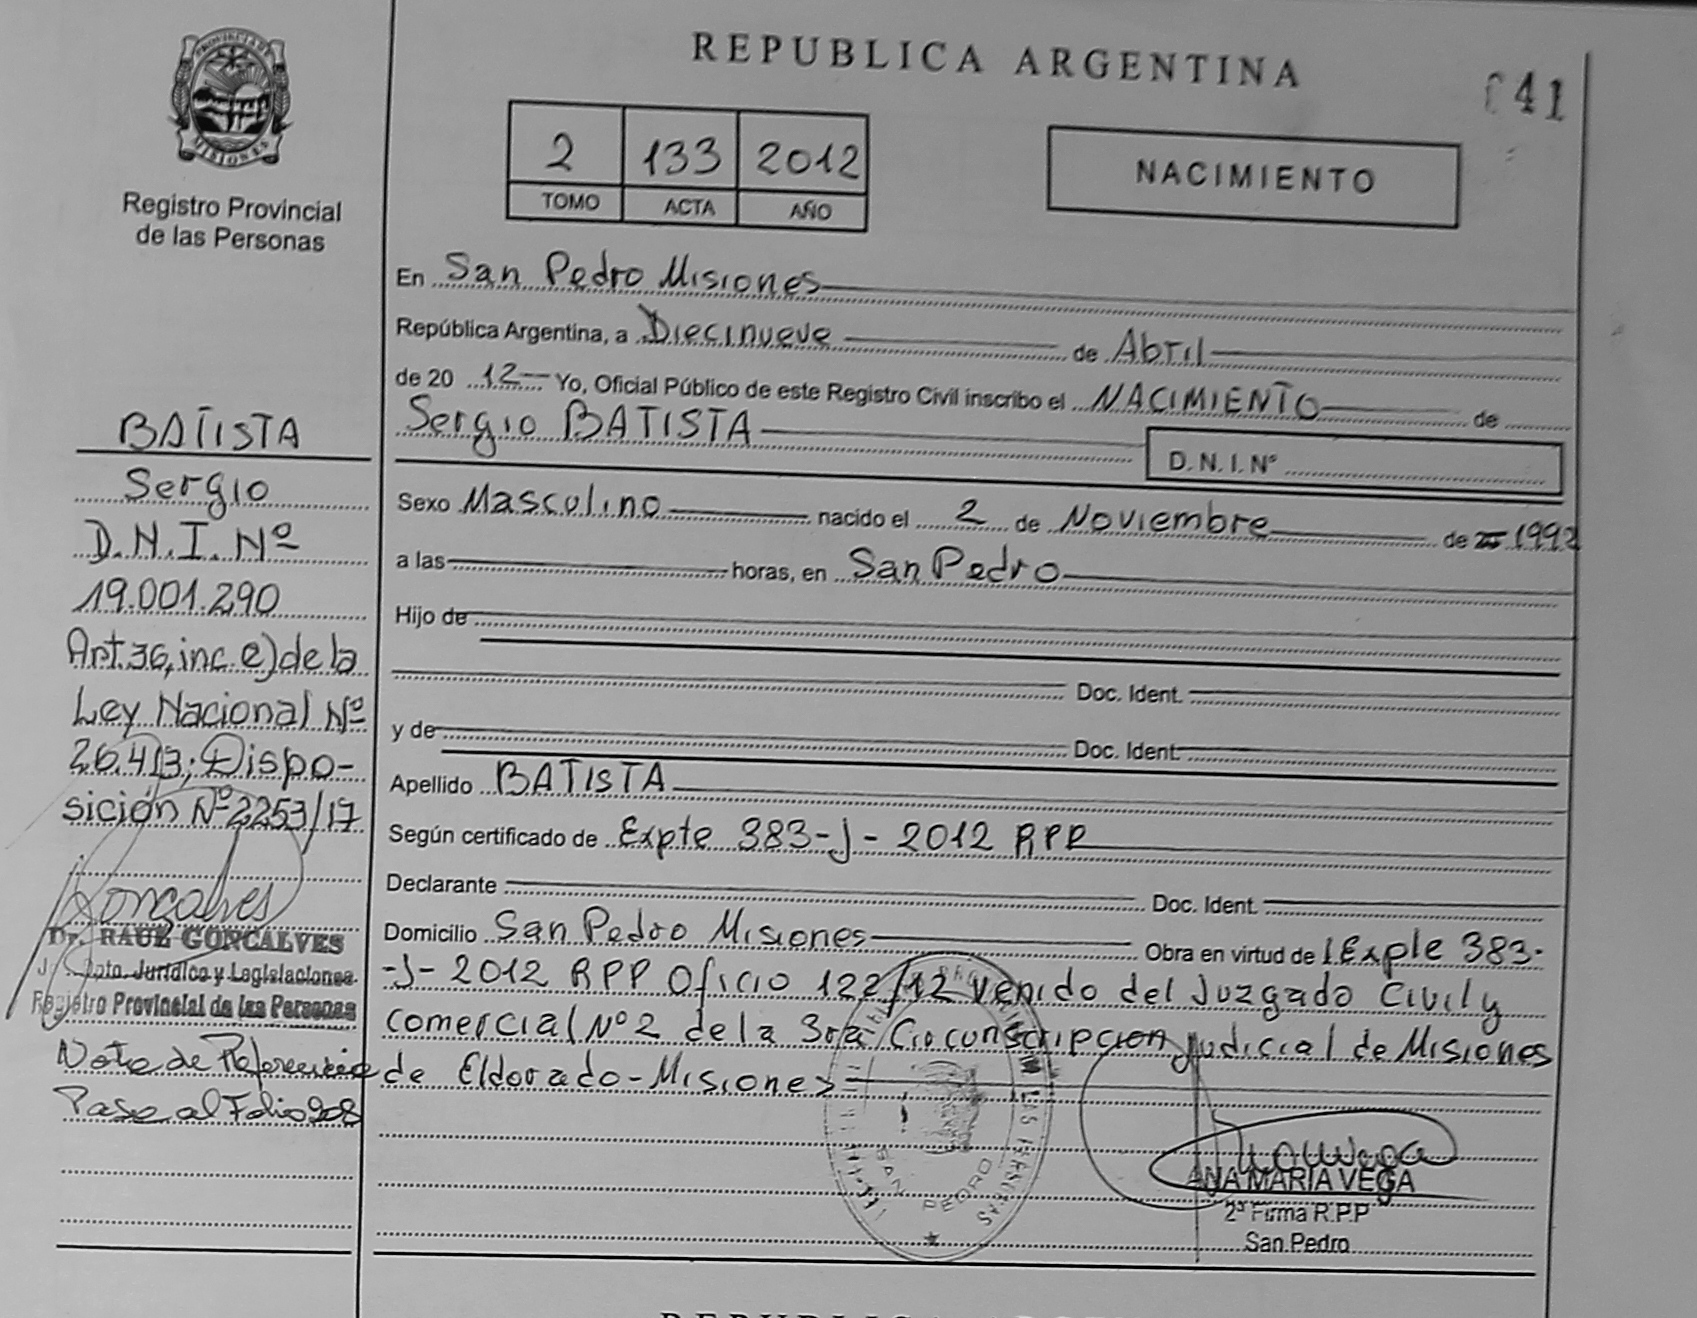 REPUBLICA ARGENTINA
41
PROVINCIA DE
MISIONES
Registro Provincial
de las Personas
2 133 2012
TOMO ACTA AÑO
NACIMIENTO
En San Pedro Misiones
República Argentina, a Diecinueve de Abril
de 20 12 Yo, Oficial Público de este Registro Civil inscribo el NACIMIENTO de
Sergio BATISTA
D.N.I.Nº
Sexo Masculino nacido el 2 de Noviembre de 1992
a las horas, en San Pedro
Hijo de
Doc. Ident.
y de Doc. Ident.
Apellido BATISTA
Según certificado de Expte 383-J-2012 RPP
Declarante Doc. Ident.
Domicilio San Pedro Misiones Obra en virtud de Expte 383-
-J-2012 RPP Oficio 122/12 Venido del Juzgado Civil y
comercial Nº 2 de la 3ra Circonscripcion judicial de Misiones
de Eldorado-Misiones
BATISTA
Sergio
D.N.I. Nº
19.001.290
Art. 36, inc. e) de la
Ley Nacional Nº
26.413; Dispo-
sición Nº 2253/17
Goncalves
Dr. RAUL GONCALVES
Dpto. Jurídico y Legislaciones
Registro Provincial de las Personas
Nota de Referencia
Pase al Folio 908
SAN PEDRO
ANA MARIA VEGA
2ª Firma R.P.P
San Pedro